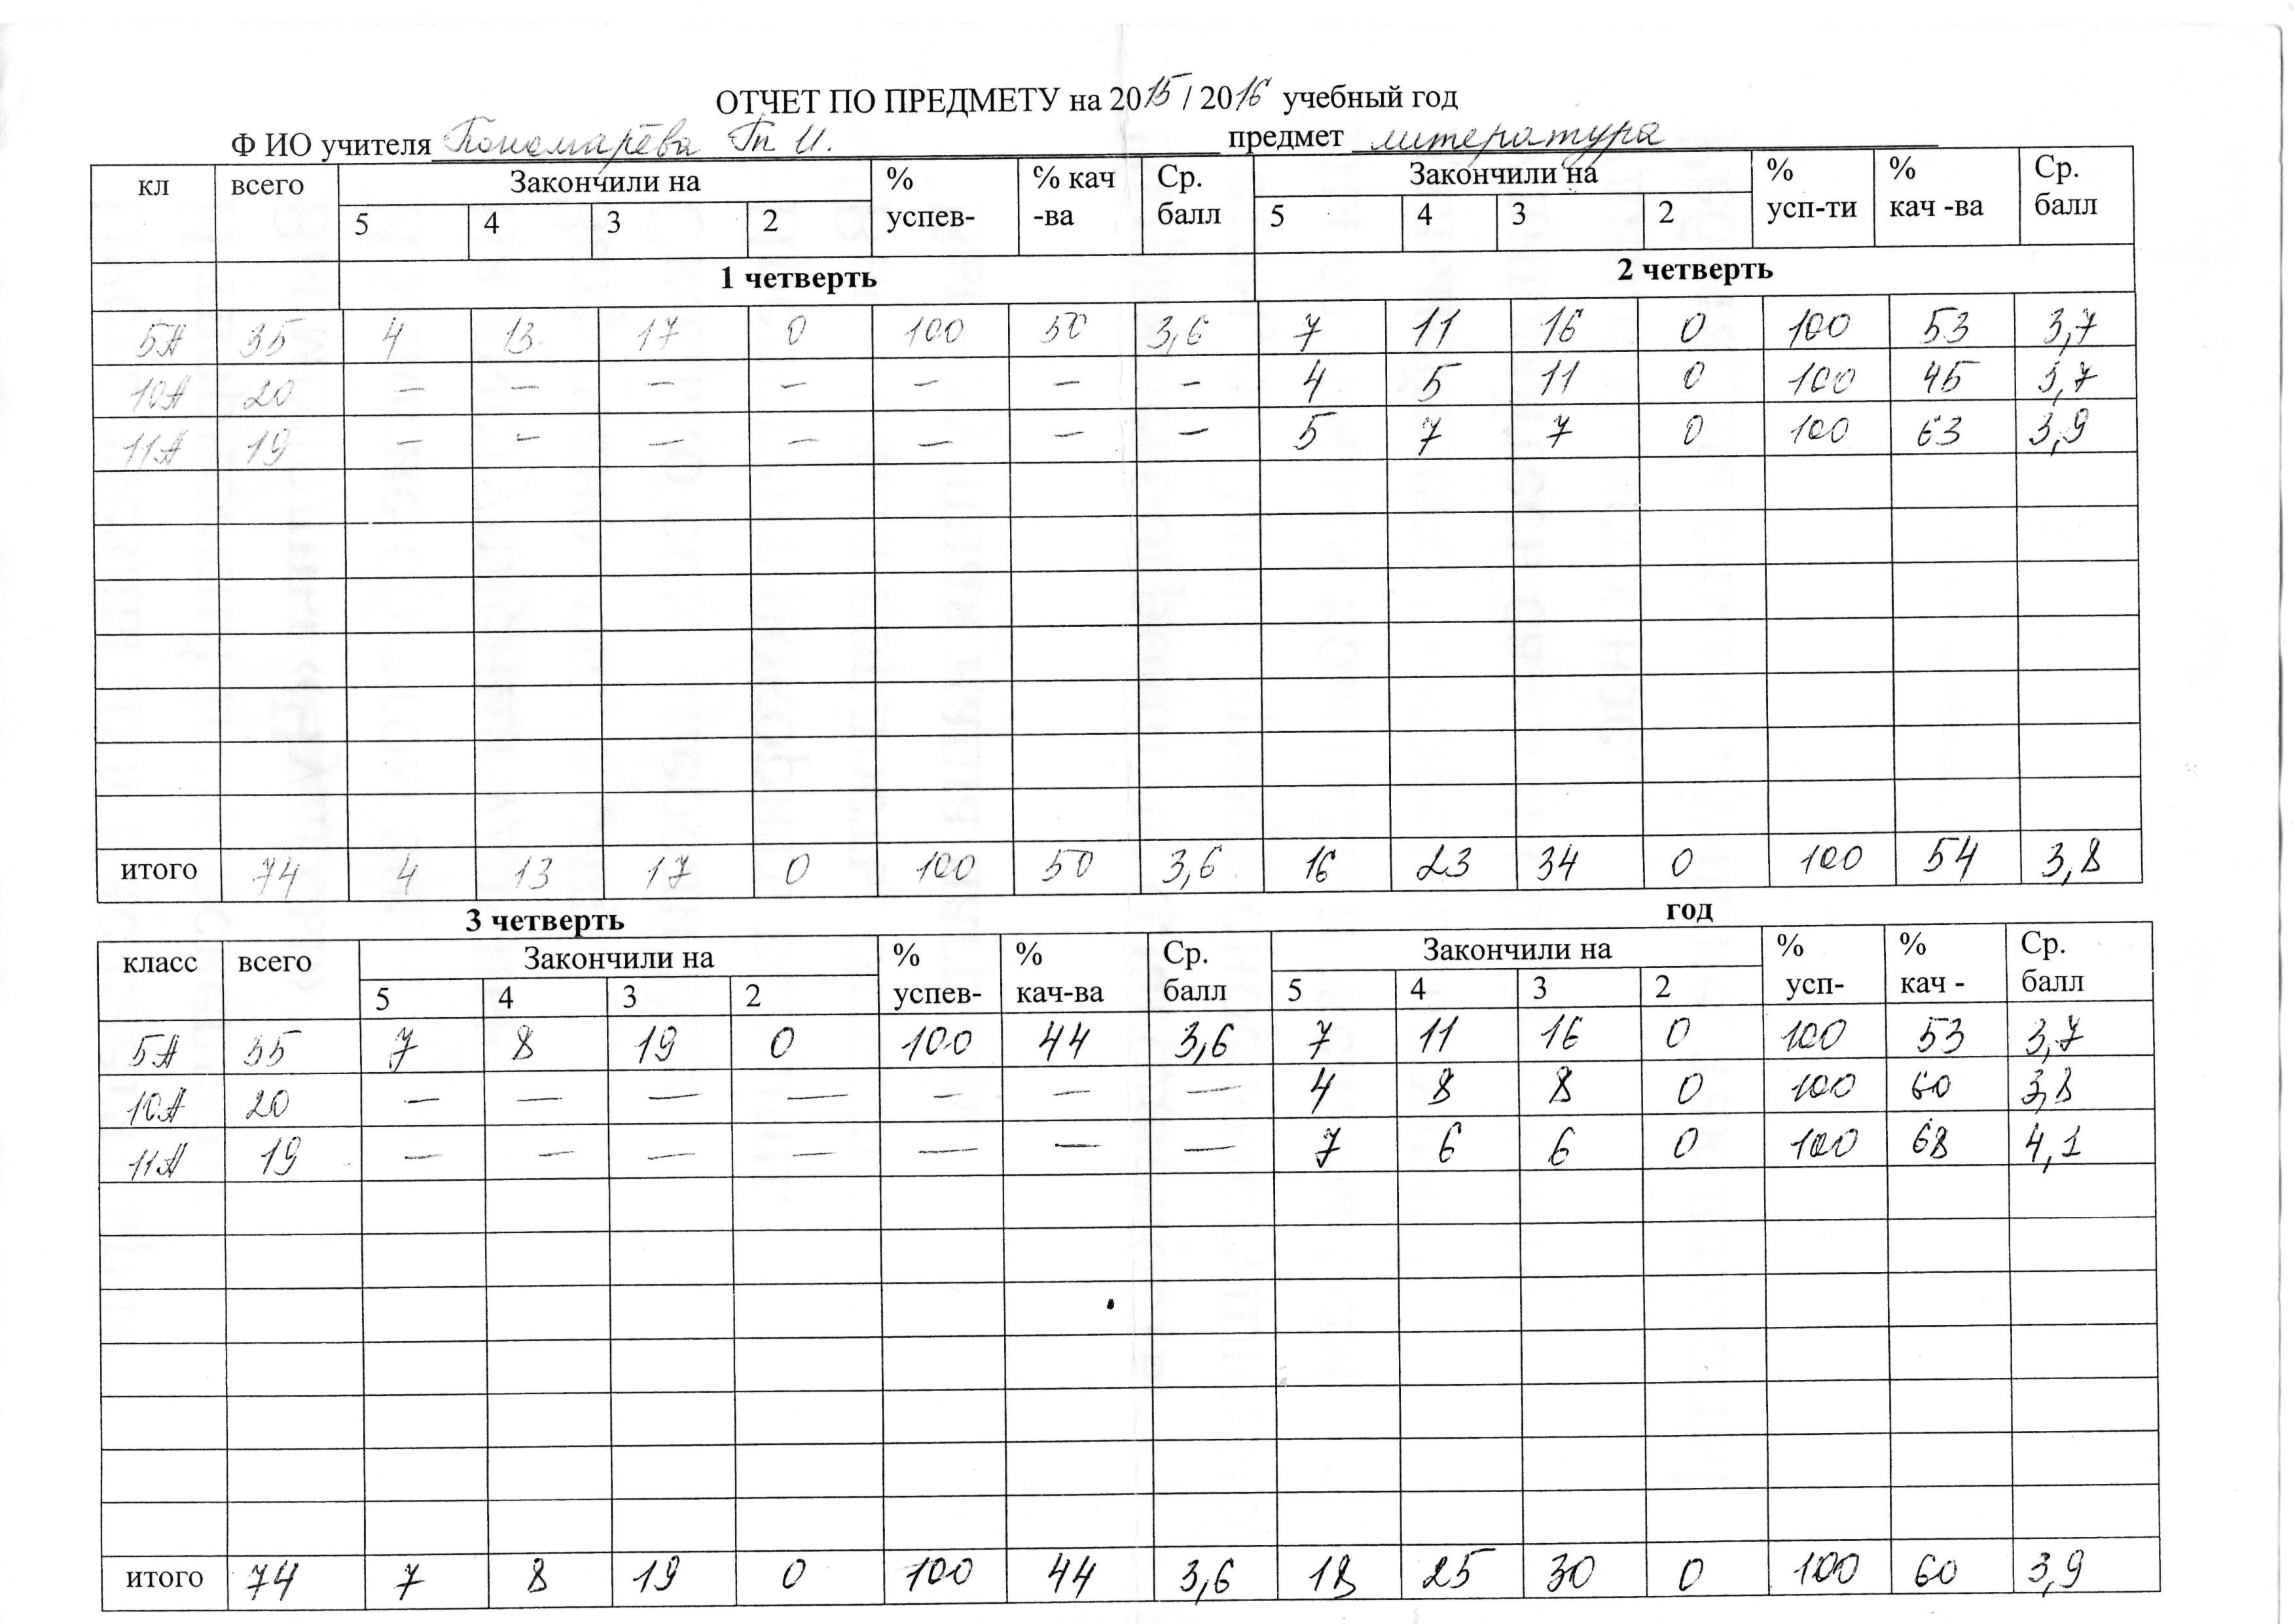 ОТЧЕТ ПО ПРЕДМЕТУ на 2015 / 2016 учебный год
Ф ИО учителя Пономарёва И. предмет литература
кл всего Закончили на % успев- % кач -ва Ср. балл Закончили на % усп-ти % кач -ва Ср. балл
5 4 3 2 5 4 3 2
1 четверть 2 четверть
5А 35 4 13 17 0 100 50 3,6 7 11 16 0 100 53 3,7
10А 20 – – – – – – – 4 5 11 0 100 45 3,7
11А 19 – – – – – – – 5 7 7 0 100 63 3,9
итого 74 4 13 17 0 100 50 3,6 16 23 34 0 100 54 3,8
3 четверть год
класс всего Закончили на % успев- % кач-ва Ср. балл Закончили на % усп- % кач - Ср. балл
5 4 3 2 5 4 3 2
5А 35 7 8 19 0 100 44 3,6 7 11 16 0 100 53 3,7
10А 20 – – – – – – – 4 8 8 0 100 60 3,8
11А 19 – – – – – – – 7 6 6 0 100 68 4,1
итого 74 7 8 19 0 100 44 3,6 18 25 30 0 100 60 3,9